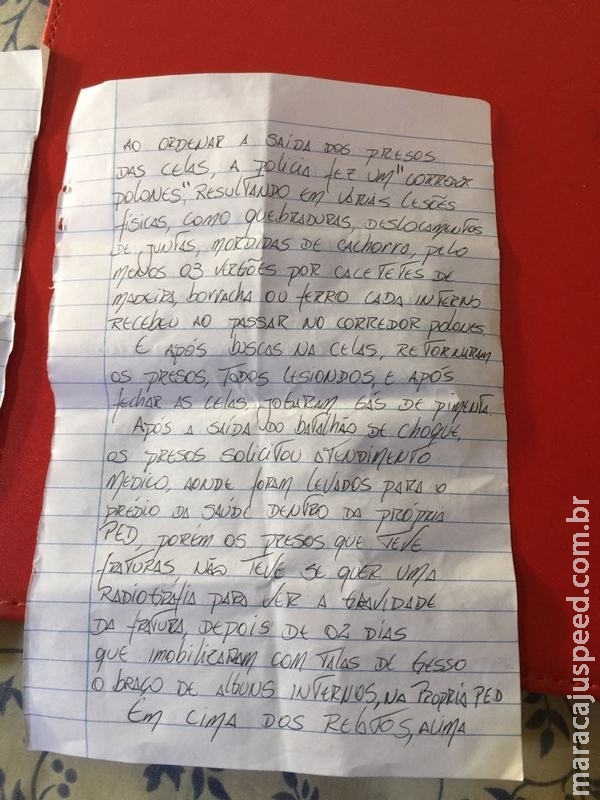 AO ORDENAR A SAÍDA DOS PRESOS
DAS CELAS, A POLICIA FEZ UM "CORREDOR
POLONES", RESULTANDO EM VÁRIAS LESÕES
FÍSICAS, COMO QUEBRADURAS, DESLOCAMENTOS
DE JUNTAS, MORDIDAS DE CACHORRO, PELO
MENOS 03 VERGÕES POR CACETETES DE
MADEIRA, BORRACHA OU FERRO CADA INTERNO
RECEBEU AO PASSAR NO CORREDOR POLONES.
E APÓS BUSCAS NA CELAS, RETORNARAM
OS PRESOS, TODOS LESIONDOS, E APÓS
FECHAR AS CELAS, JOGARAM GÁS DE PIMENTA.
APÓS A SAÍDA DO BATALHÃO DE CHOQUE,
OS PRESOS SOLICITOU ATENDIMENTO
MEDICO, AONDE FORAM LEVADOS PARA O
PRÉDIO DA SAÚDE DENTRO DA PRÓPRIA
PED, PORÉM OS PRESOS QUE TEVE
FRATURAS, NÃO TEVE SE QUER UMA
RADIOGRÁFIA PARA VER A GRAVIDADE
DA FRATURA, DEPOIS DE 02 DIAS
QUE IMOBILIZARAM COM TALAS DE GESSO
O BRAÇO DE ALGUNS INTERNOS, NA PROPRIA PED
EM CIMA DOS RELATOS, ACIMA
maracajuspeed.com.br